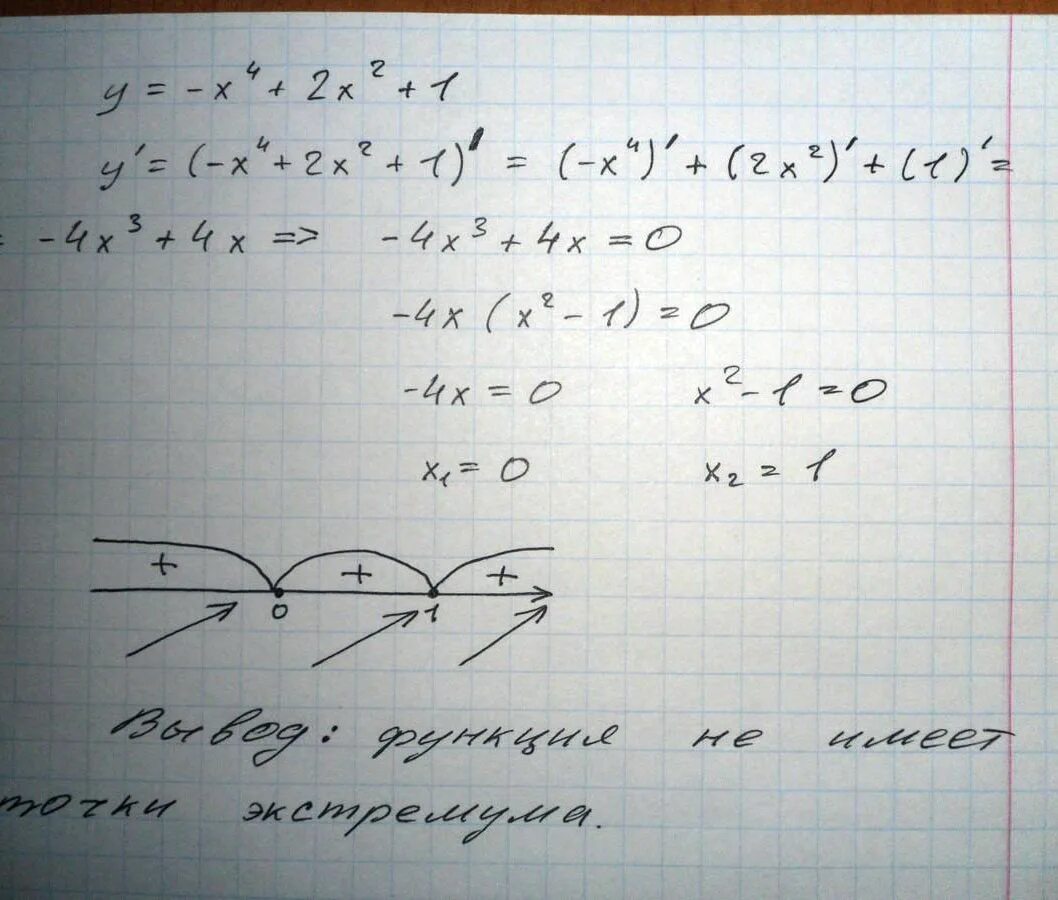 y = -x⁴ + 2x² + 1
y' = (-x⁴ + 2x² + 1)' = (-x⁴)' + (2x²)' + (1)' =
= -4x³ + 4x => -4x³ + 4x = 0
-4x (x² - 1) = 0
-4x = 0 x² - 1 = 0
x₁ = 0 x₂ = 1
+ + +
0 1
Вывод: функция не имеет
точки экстремума.